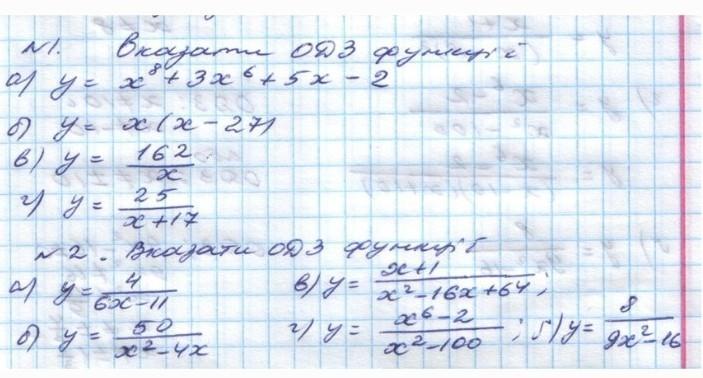 №1. Вказати ОДЗ функції
а) y = x⁸ + 3x⁶ + 5x - 2
б) y = x(x - 27)
в) y = 162/x
г) y = 25/(x+17)
№2. Вказати ОДЗ функції
а) y = 4/(6x-11) в) y = (x+1)/(x²-16x+64);
б) y = 50/(x²-4x) г) y = (x⁶-2)/(x²-100); ґ) y = 8/(9x²-16)